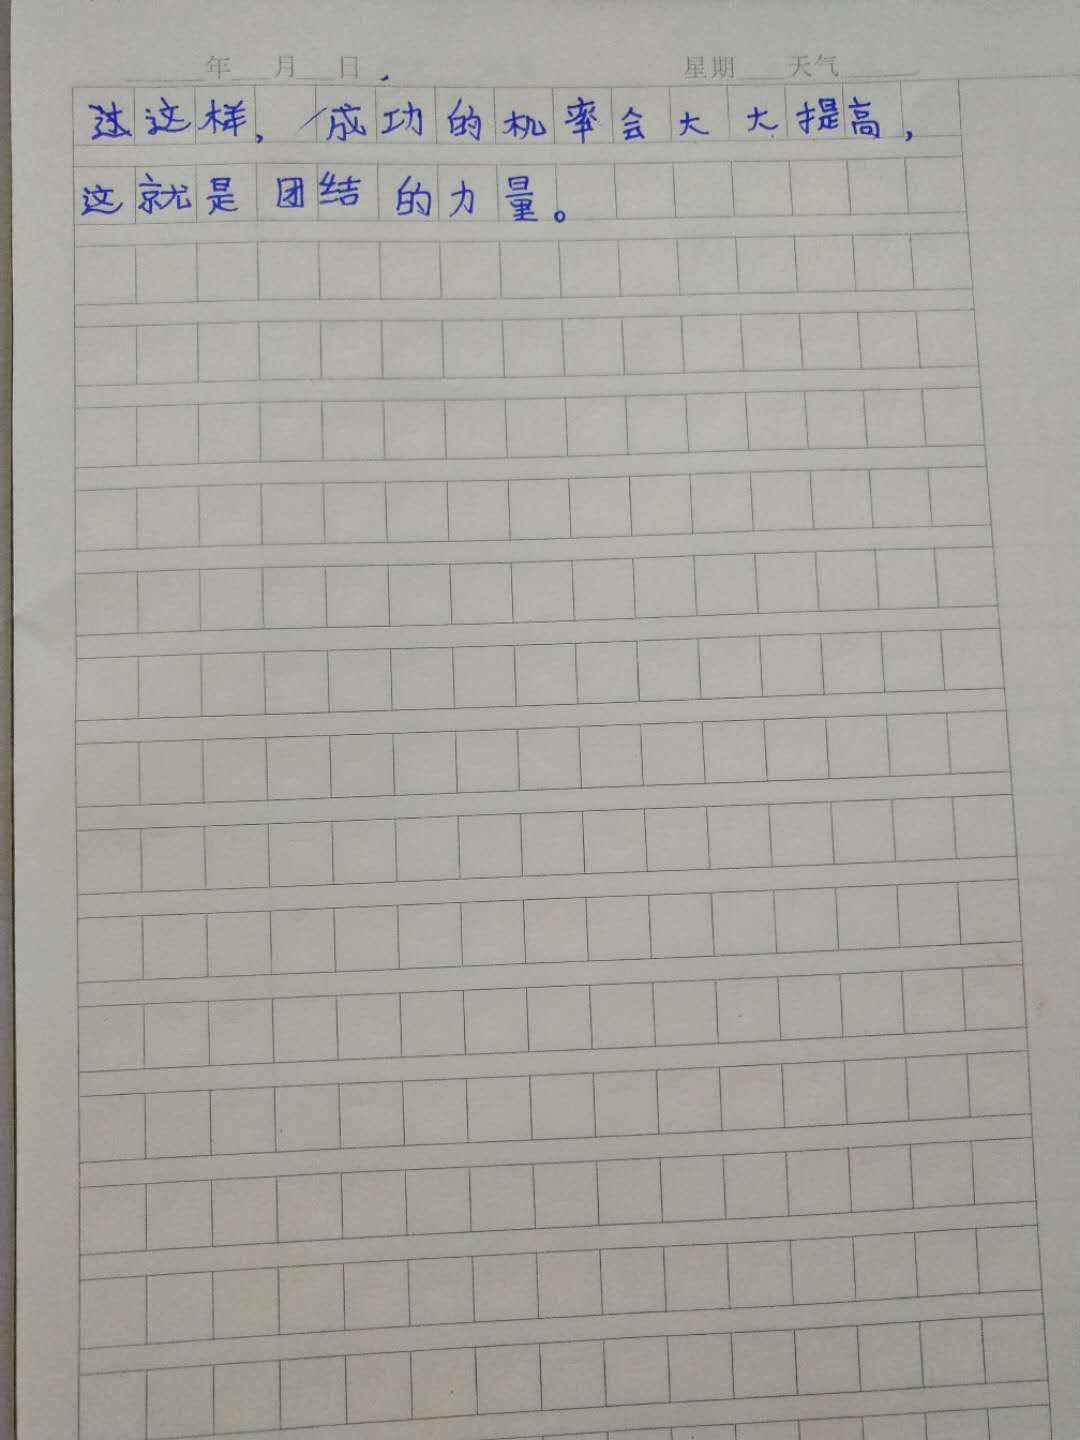 年 月 日 星期 天气
过这样，成功的机率会大大提高，
这就是团结的力量。